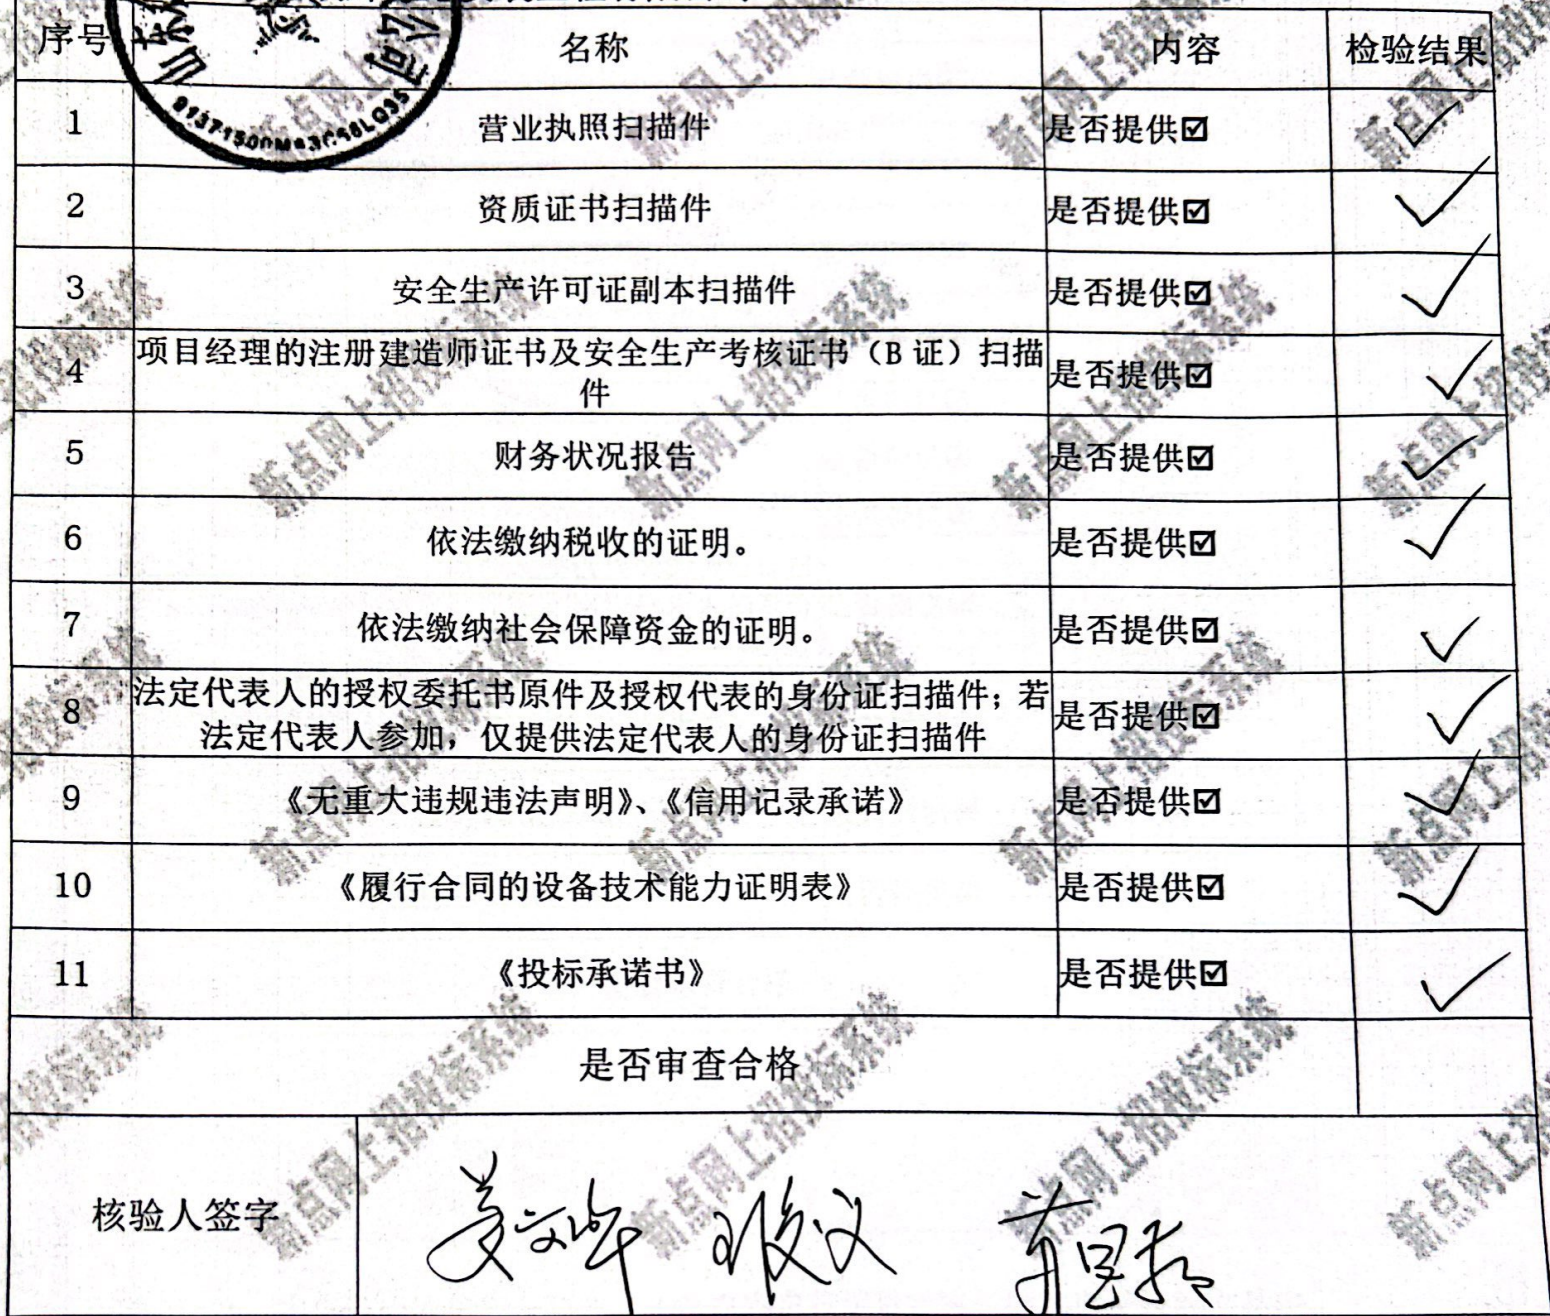 序号 名称 内容 检验结果
1 营业执照扫描件 是否提供☑ ✓
2 资质证书扫描件 是否提供☑ ✓
3 安全生产许可证副本扫描件 是否提供☑ ✓
4 项目经理的注册建造师证书及安全生产考核证书（B 证）扫描
件 是否提供☑ ✓
5 财务状况报告 是否提供☑ ✓
6 依法缴纳税收的证明。 是否提供☑ ✓
7 依法缴纳社会保障资金的证明。 是否提供☑ ✓
8 法定代表人的授权委托书原件及授权代表的身份证扫描件；若
法定代表人参加，仅提供法定代表人的身份证扫描件 是否提供☑ ✓
9 《无重大违规违法声明》、《信用记录承诺》 是否提供☑ ✓
10 《履行合同的设备技术能力证明表》 是否提供☑ ✓
11 《投标承诺书》 是否提供☑ ✓
是否审查合格
核验人签字
新点网上招投标系统